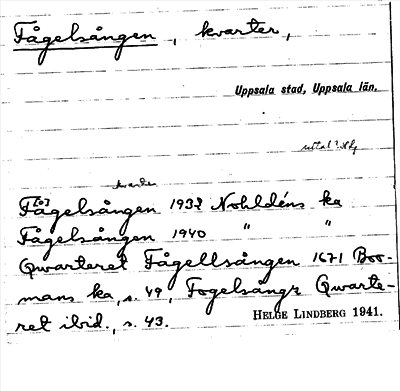 Fågelsången, kvarter,
Uppsala stad, Uppsala län.
uttal?
kvarter
F[o]gelsången 1932 Nohldéns ka
Fågelsången 1940 " "
Qwarteret Fågellsången 1671 Boo-
mans ka, s. 49, Fogelsångz Qwarte-
ret ibid., s. 43.
HELGE LINDBERG 1941.